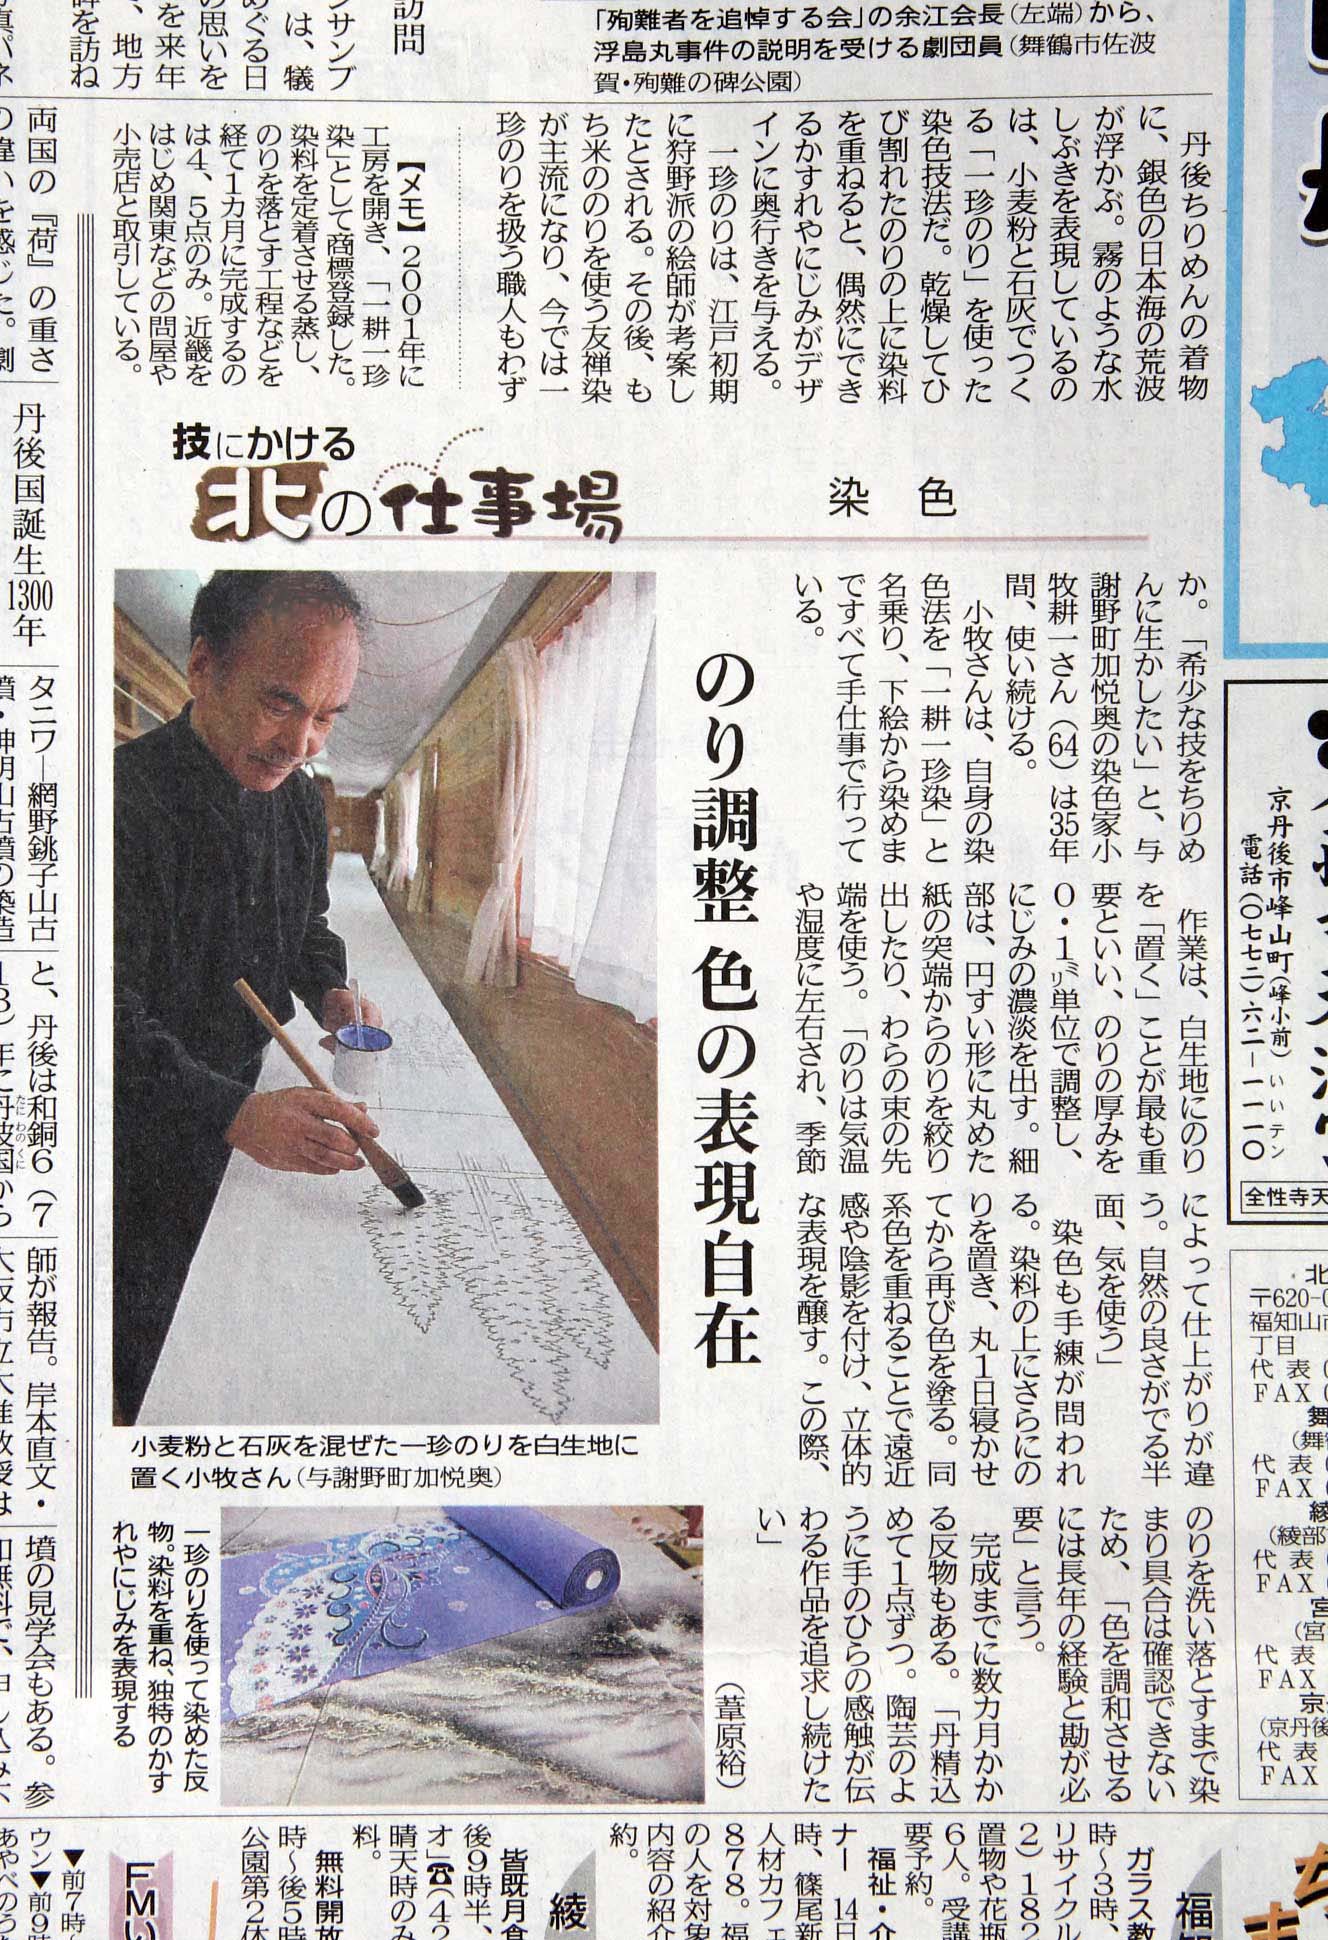 「殉難者を追悼する会」の余江会長(左端)から、
浮島丸事件の説明を受ける劇団員(舞鶴市佐波
賀・殉難の碑公園)
丹後ちりめんの着物
に、銀色の日本海の荒波
が浮かぶ。霧のような水
しぶきを表現しているの
は、小麦粉と石灰でつく
る「一珍のり」を使った
染色技法だ。乾燥してひ
び割れたのりの上に染料
を重ねると、偶然にでき
るかすれやにじみがデザ
インに奥行きを与える。
一珍のりは、江戸初期
に狩野派の絵師が考案し
たとされる。その後、も
ち米ののりを使う友禅染
が主流になり、今では一
珍のりを扱う職人もわず
【メモ】2001年に
工房を開き、「一耕一珍
染」として商標登録した。
染料を定着させる蒸し、
のりを落とす工程などを
経て1カ月に完成するの
は4、5点のみ。近畿を
はじめ関東などの問屋や
小売店と取引している。
技にかける
北の仕事場
染色
か。「希少な技をちりめ
んに生かしたい」と、与
謝野町加悦奥の染色家小
牧耕一さん(64)は35年
間、使い続ける。
小牧さんは、自身の染
色法を「一耕一珍染」と
名乗り、下絵から染めま
ですべて手仕事で行って
いる。
のり調整 色の表現自在
作業は、白生地にのり
を「置く」ことが最も重
要といい、のりの厚みを
0・1㍉単位で調整し、
にじみの濃淡を出す。細
部は、円すい形に丸めた
紙の突端からのりを絞り
出したり、わらの束の先
端を使う。「のりは気温
や湿度に左右され、季節
によって仕上がりが違
う。自然の良さがでる半
面、気を使う」
染色も手練が問われ
る。染料の上にさらにの
りを置き、丸1日寝かせ
てから再び色を塗る。同
系色を重ねることで遠近
感や陰影を付け、立体的
な表現を醸す。この際、
のりを洗い落とすまで染
まり具合は確認できない
ため、「色を調和させる
には長年の経験と勘が必
要」と言う。
完成までに数カ月かか
る反物もある。「丹精込
めて1点ずつ。陶芸のよ
うに手のひらの感触が伝
わる作品を追求し続けた
い」
(葦原裕)
小麦粉と石灰を混ぜた一珍のりを白生地に
置く小牧さん(与謝野町加悦奥)
一珍のりを使って染めた反
物。染料を重ね、独特のかす
れやにじみを表現する
訪問
両国の『荷』の重さ
丹後国誕生1300年
タニワ―網野銚子山古
と、丹後は和銅6(7
師が報告。岸本直文・
墳の見学会もある。参
京丹後市峰山町(峰小前)
いいテン
電話(0772)六二―一一一〇
全性寺天
〒620-0
福知山市
丁目
代表
FAX
代表
FAX
(綾部
代表
FAX
代表
FAX
(京丹後
代表
FAX
ガラス教
時〜3時、
リサイクル
2)182
置物や花瓶
6人。受講
要予約。
福祉・介
ナー 14日
時、篠尾新
人材カフェ
878。福
の人を対象
内容の紹介
約。
綾
皆既月食
後9時半、
オ」☎(42
晴天時のみ
料。
無料開放
時〜後5時
公園第2体
FMい
▼前7時〜
ウン▼前9時